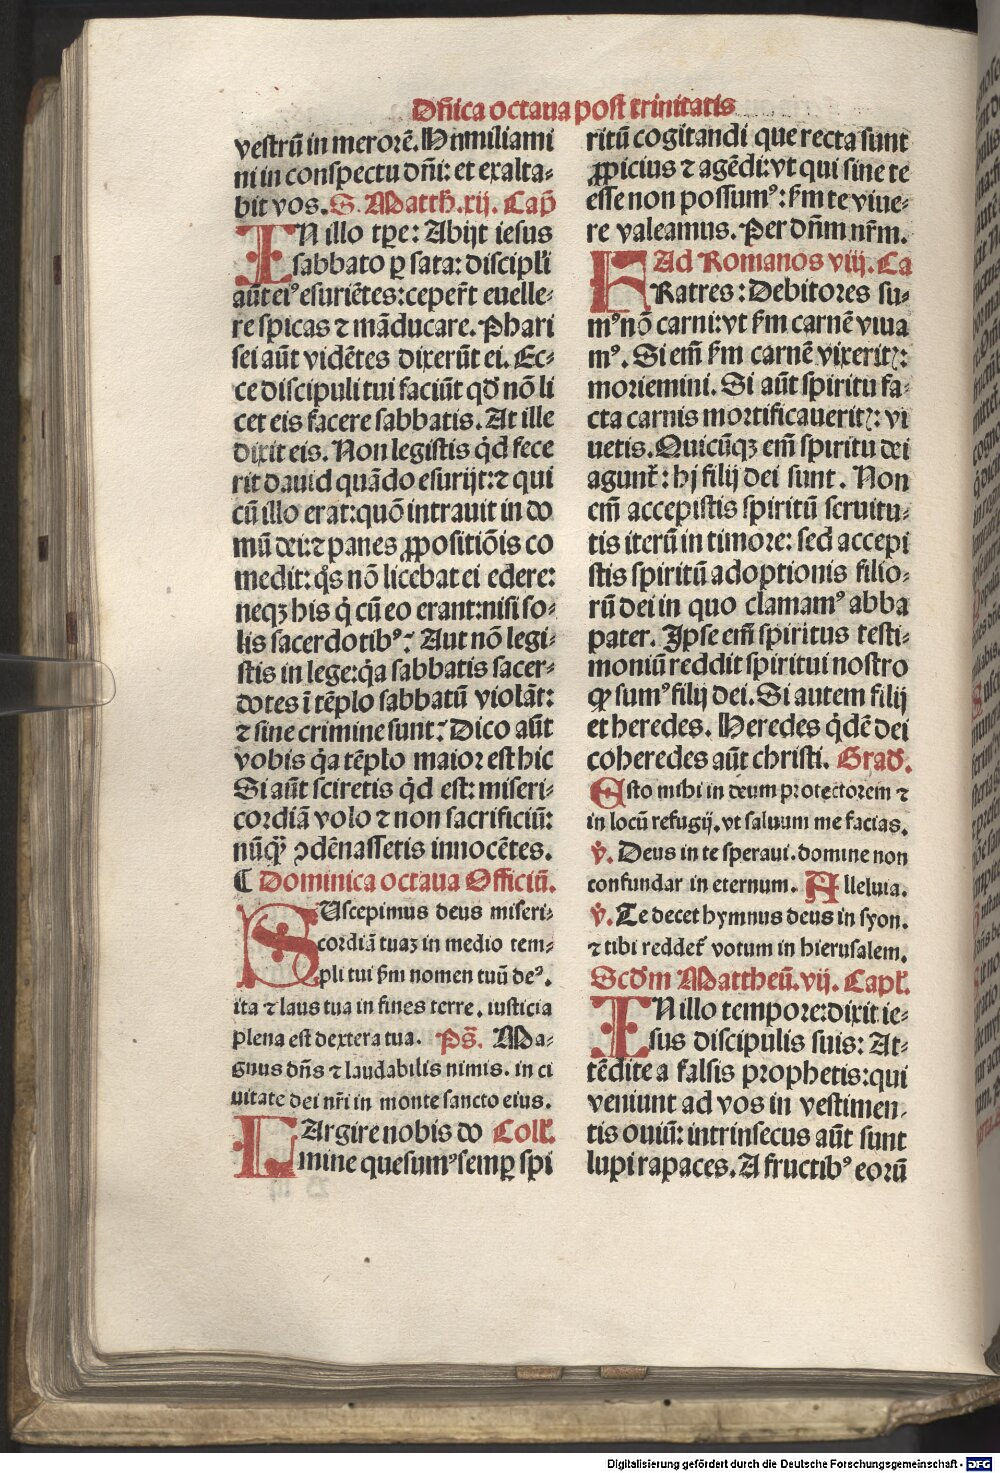 Dñica octaua post trinitatis
vestrū in merorē. Humiliami
ni in conspectu dñi: et exalta⸗
bit vos. S. Matth. xij. Cap̄
IN illo tꝑe: Abijt iesus
sabbato ꝑ sata: discipl'i
aūt eiꝰ esuriētes: ceper̄t euelle⸗
re spicas ⁊ māducare. Phari
sei aūt vidētes dixerūt ei. Ec⸗
ce discipuli tui faciūt qd̄ nō li
cet eis facere sabbatis. At ille
dixit eis. Non legistis qͥd fece
rit dauid quādo esurijt: ⁊ qui
cū illo erat: quō intrauit in do
mū dei: ⁊ panes ꝓpositiōis co
medit: qͦs nō licebat ei edere:
neqꝫ his qͥ cū eo erant: nisi so⸗
lis sacerdotibꝰ: Aut nō legi⸗
stis in lege: qͥa sabbatis sacer⸗
dotes ī tēplo sabbatū violāt:
⁊ sine crimine sunt: Dico aūt
vobis qͥa tēplo maior est hic
Si aūt sciretis qͥd est: miseri⸗
cordiā volo ⁊ non sacrificiū:
nūqͣꝫ ꝯdēnassetis innocētes.
¶ Dominica octaua Officiū.
SUscepimus deus miseri⸗
cordiā tuaꝫ in medio tem⸗
pli tui ẜm nomen tuū deꝰ.
ita ⁊ laus tua in fines terre. iusticia
plena est dextera tua. Ps̄. Ma⸗
gnus dn̄s ⁊ laudabilis nimis. in ci
uitate dei nr̄i in monte sancto eius.
LArgire nobis do Coll'.
mine quesumꝰ semꝑ spi
ritū cogitandi que recta sunt
ꝓpicius ⁊ agēdi: vt qui sine te
esse non possumꝰ: ẜm te viue⸗
re valeamus. Per dn̄m nr̄m.
Ad Romanos viij. Ca
FRatres: Debitores su⸗
mꝰ nō carni: vt ẜm carnē viua
mꝰ. Si em̄ ẜm carnē vixeritꝭ:
moriemini. Si aūt spiritu fa⸗
cta carnis mortificaueritꝭ: vi
uetis. Quicūqꝫ em̄ spiritu dei
agunt᷑: hj filij dei sunt. Non
em̄ accepistis spiritū seruitu⸗
tis iterū in timore: sed accepi
stis spiritū adoptionis filio⸗
rū dei in quo clamamꝰ abba
pater. Ipse em̄ spiritus testi⸗
moniū reddit spiritui nostro
ꝙ sumꝰ filij dei. Si autem filij
et heredes. Heredes qͥdē dei
coheredes aūt christi. Grad̄.
Esto mihi in deum protectorem ⁊
in locū refugij. vt saluum me facias.
℣. Deus in te speraui. domine non
confundar in eternum. Alleluia.
℣. Te decet hymnus deus in syon.
⁊ tibi reddet᷑ votum in hierusalem.
Scd̄m Mattheū. vij. Capl'.
IN illo tempore: dixit ie⸗
sus discipulis suis: At⸗
tēdite a falsis prophetis: qui
veniunt ad vos in vestimen⸗
tis ouiū: intrinsecus aūt sunt
lupi rapaces. A fructibꝰ eorū
Digitalisierung gefördert durch die Deutsche Forschungsgemeinschaft - DFG